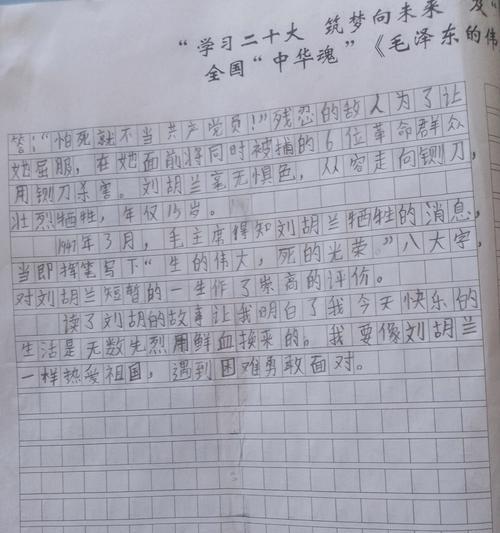 “学习二十大 筑梦向未来 及“
全国“中华魂”《毛泽东的伟
答：“怕死就不当共产党员！”残忍的敌人为了让
她屈服，在她面前将同时被捕的6位革命群众
用铡刀杀害。刘胡兰毫无惧色，从容走向铡刀，
壮烈牺牲，年仅15岁。
1947年3月，毛主席得知刘胡兰牺牲的消息，
当即挥笔写下“生的伟大，死的光荣。”八大字，
对刘胡兰短暂的一生作了崇高的评价。
读了刘胡的故事让我明白了我今天快乐的
生活是无数先烈用鲜血换来的。我要像刘胡兰
一样热爱祖国，遇到困难勇敢面对。